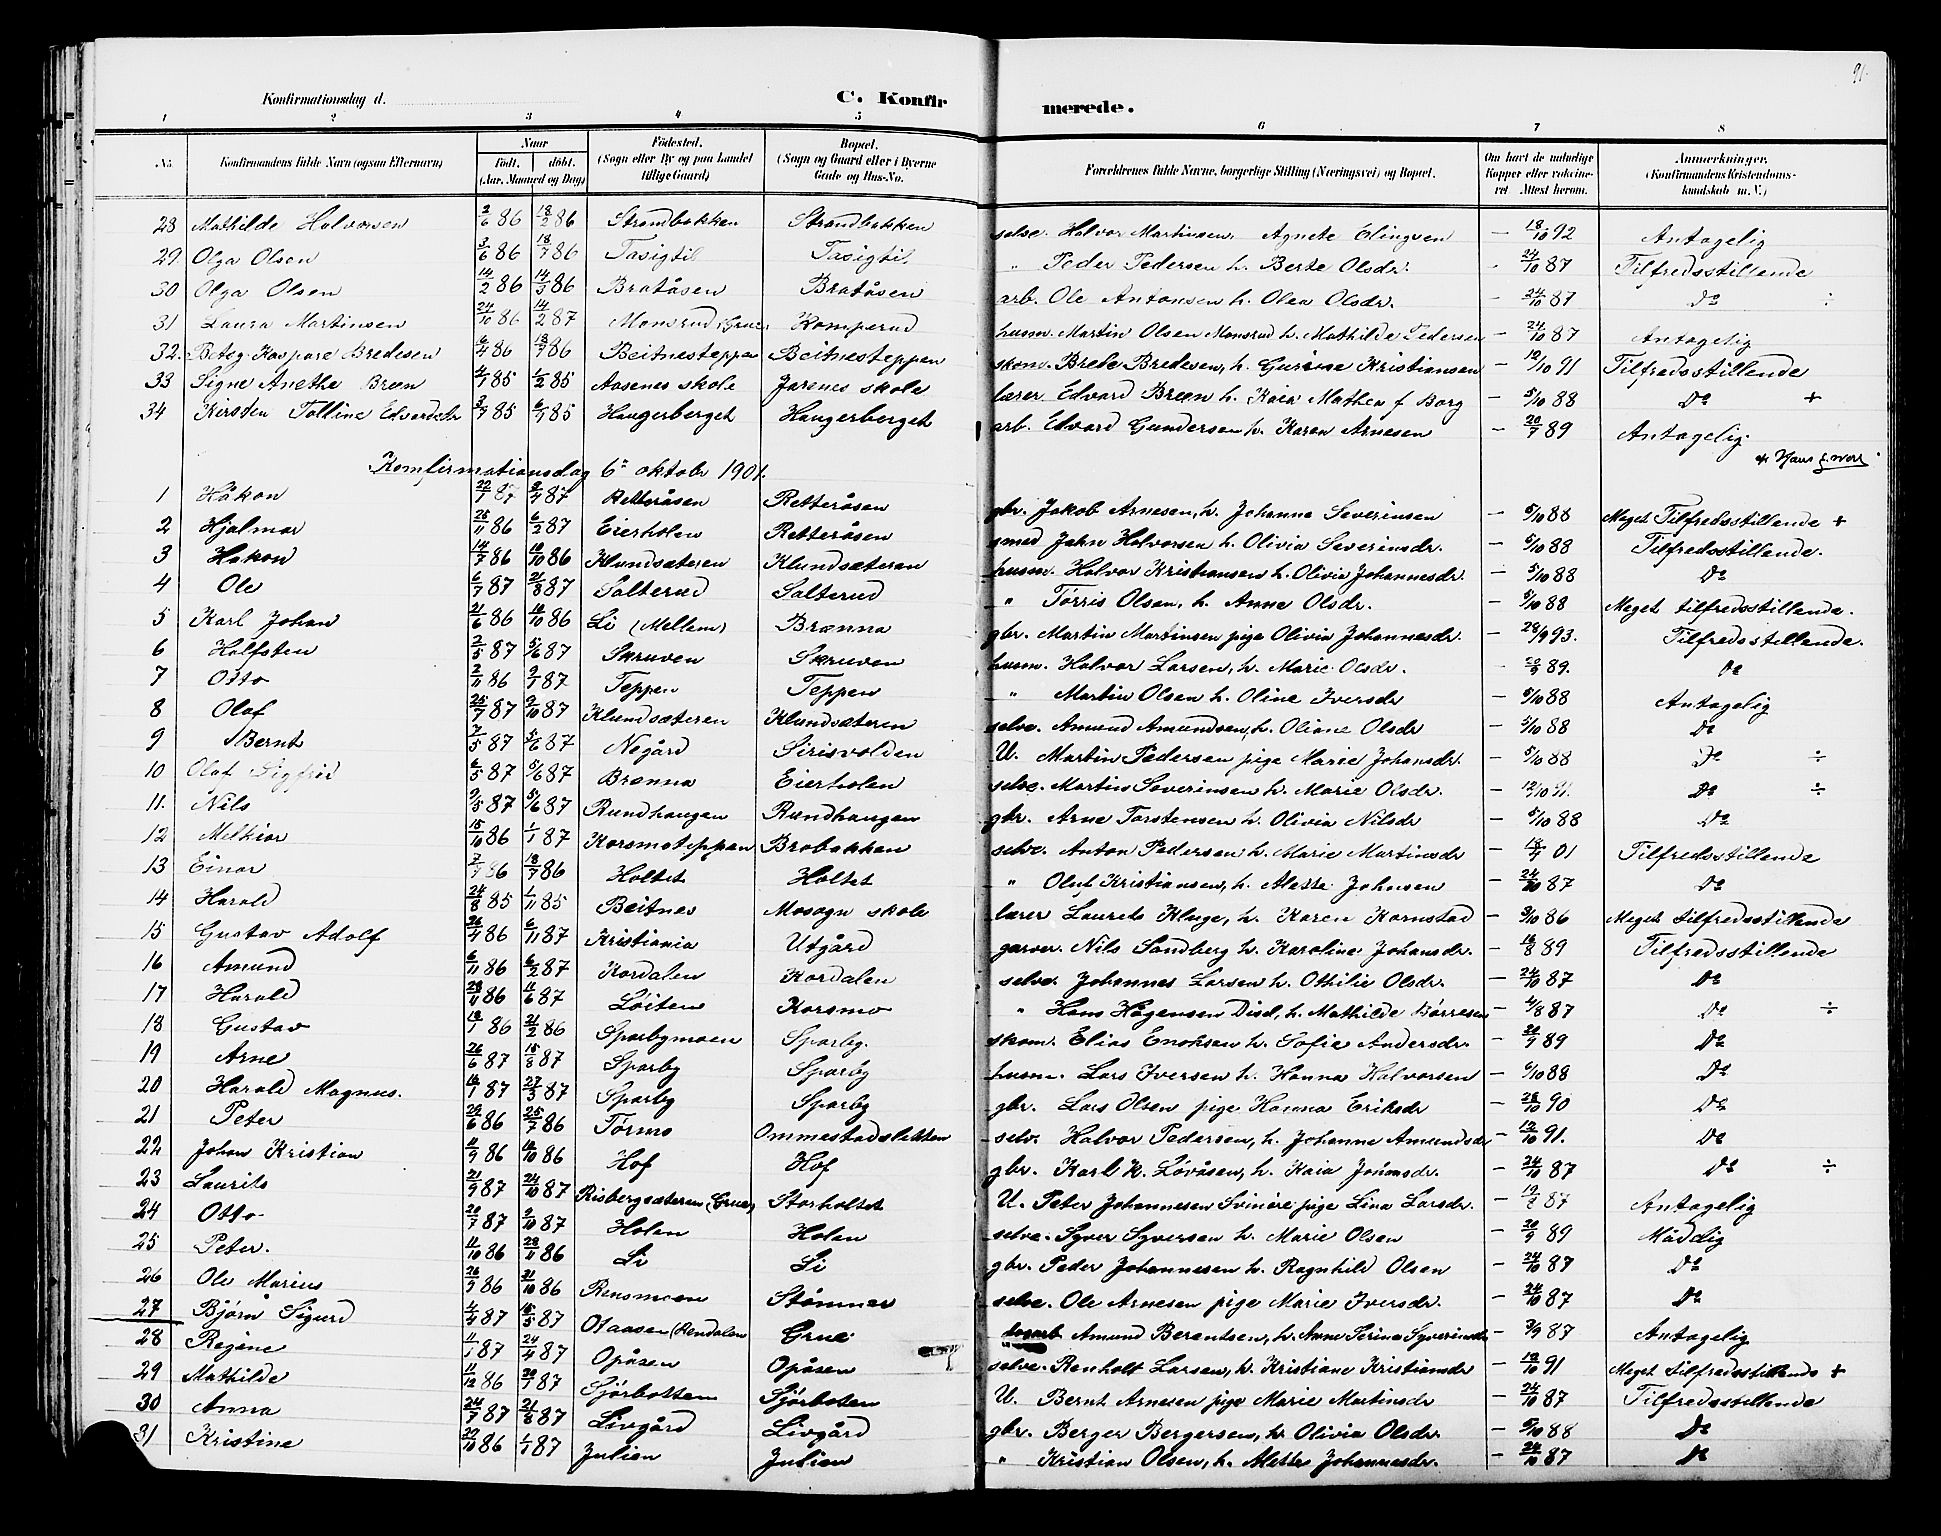 91.
Konfirmationsdag d. C. Konfirmerede.
1 2 3 4 5 6 7 8
No. Konfirmandens fulde Navn (ogsaa Efternavn) Naar født. døbt. (Aar, Maaned og Dag) Fødested. (Sogn eller By og paa Landet tillige Gaard) Bopæl. (Sogn og Gaard eller i Byerne Gade og Hus-No. Forældrenes fulde Navne, borgerlige Stilling (Næringsvei) og Bopæl. Om havt de naturlige Kopper eller vakcineret. Attest herom. Anmærkninger. (Konfirmandens Kristendomskundskab m. V.)
28 Mathilde Halvorsen 2/6 86 18/2 86 Strandbakken Strandbakken selve. Halvor Martinsen, Agnete Elingsen – 18/10 92 Antagelig
29. Olga Olsen 3/6 86 18/7 86 Tasigtil Tasigtil " Peder Pedersen h. Berte Olsdr. – 24/10 87 Tilfredsstillende
30 Olga Olsen 14/2 86 14/3 86 Bratåsen Bratåsen arb. Ole Antonsen h. Olea Olsdr. – 24/10 87 Do ÷
31 Laura Martinsen 24/10 86 14/2 87 Monsrud (Grue) Komperud husm. Martin Olsen Monsrud h. Mathilde Pedersen – 24/10 87 Antagelig
32. Betzy Kaspare Bredesen 6/4 86 18/7 86 Beitnesteppen Beitnesteppen skom. Brede Bredesen, h. Gurine Kristiansen – 12/10 91 Tilfredsstillende
33 Signe Anethe Bræn 4/1 85 1/2 85 Aasenes skole Jarenes skole lærer Edvard Bræn h. Kaia Mathea f Borg – 5/10 88 Do +
34 Kirsten Talline Edvardsdr 3/7 85 6/1 85 Haugerberget Haugerberget arb. Edvard Gundersen h. Karen Arnesen – 20/9 89 Antagelig.
Konfirmationsdag 6te oktobr 1901.
1 Håkon 22/1 87 3/4 87 Retteråsen Retteråsen gbr. Jakob Arnesen, h. Johanne Severinsen – 5/10 88 Meget Tilfredsstillende +
2 Hjalmar 25/11 86 6/2 87 Eierholen Retteråsen smed John Halvorsen h. Olivia Severinsdr. – 5/10 88 Tilfredsstillende.
3 Hakon 14/7 86 10/10 86 Klundsæteren Klundsæteren husm. Halvor Kristiansen h. Olivia Johannesdr. – 5/10 88 Do
4 Ole 6/7 87 21/8 87 Salterud Salterud " Tørris Olsen, h. Anne Olsdr. – 5/10 88 Meget tilfredsstillende.
5 Karl Johan 21/6 86 10/10 86 Li (Mellem) Brænna gbr. Martin Martinsen pige Olivia Johannesdr. – 28/9 93. Tilfredsstillende.
6 Halfsten 2/5 87 5/6 87 Skruven Skruven husm. Halvor Larsen, h. Marie Olsdr. – 20/9 89. Do
7 Otto 2/11 86 9/1 87 Teppen Teppen " Martin Olsen h. Oline Iversdr – 5/10 88 Antagelig
8 Olaf 25/7 87 9/10 87 Klundsæteren Klundsæteren selve. Amund Amundsen, h. Oliane Olsdr – 5/10 88 Do
9 Bernt 7/5 87 5/6 87 Negård Sirisvolden U. Martin Pedersen pige Marie Johansdr. – 5/10 88 Do ÷
10 Olaf Sigfrid 6/5 87 5/6 87 Brænna Eierholen selve. Martin Severinsen h. Marie Olsdr. – 12/10 91. Do ÷
11. Nils 9/5 87 5/6 87 Rundhaugen Rundhaugen gbr. Arne Torstensen h. Olivia Nilsdr – 5/10 88 Do
12 Melkior 15/10 86 1/1 87 Korsmoteppen Brobakken selve. Anton Pedersen h. Marie Martinsdr – 18/4 01 Tilfredsstillende
13 Einar 2/7 86 18/7 86 Holtet Holtet " Oluf Kristiansen, h. Alette Johnsen – 24/10 87 Do
14 Harald 24/8 85 1/11 85 Beitnes Mosogn skole lærer Laurets Kluge, h. Karen Karnstad – 3/10 86 Meget tilfredsstillende
15 Gustav Adolf 26/4 86 6/11 87 Kristiania Utgård garver. Nils Sandberg h. Karoline Johansdr. – 16/8 89 Tilfredsstillende
16 Amund 6/11 86 6/2 87 Kordalen Kordalen selve. Johannes Larsen h. Othilie Olsdr. – 24/10 87 Do
17 Harald 28/11 86 11/6 87 Løiten Korsmo " Hans Hågensen Disel, h. Mathilde Børresen – 4/8 87 Do ÷
18 Gustav 18/1 86 21/2 86 Sparbymoen Sparby. skom. Elias Enoksen h. Sofie Andersdr. – 20/9 89 Do
19 Arne 26/6 87 15/8 87 Sparby Sparby husm. Lars Iversen h. Hanna Halvorsen – 5/10 88 Do
20 Harald Magnus. 16/1 87 27/3 87 Sparby Sparby gbr. Lars Olsen pige Hanna Eriksdr – 28/10 90 Do
21 Peter 29/6 86 25/7 86 Tørmo Ommestadsletten selv. Halvor Pedersen, h. Johanne Amundsdr – 12/10 91. Do
22 Johan Kristian 11/9 86 10/10 86 Hof Hof gbr. Karl K. Løvåsen, h. Kaia Johansdr. – 24/10 87 Do ÷
23 Laurits 21/9 87 24/10 87 Risbergsæteren (Grue) Storholtet U. Peter Johannesen Svinære pige Lina Larsdr. – 87 Antagelig
24 Otto 20/7 87 9/10 87 Holen Holen selve. Syver Syversen h. Marie Olsen – 20/9 89 Måddig
25 Peter. 11/10 86 28/11 86 Li Li gbr. Peder Johannesen h. Ragnhild Olsen – 24/10 87 Do
26 Ole Marius 26/9 86 31/10 86 Rensmoen Stømner selve. Ole Arnesen pige Marie Iversdr. – 24/10 87 Do
27 Bjørn Sigurd 4/4 87 15/5 87 Osaasen (Rendalen Grue Amund Berentsen, h. Anne Serine Syverinsdr – 3/9 87 Antagelig
28 Regine 11/1 87 24/4 87 Opåsen Opåsen selve. Renholt Larsen, h. Kristiane Kristiansdr – 12/10 91 Meget tilfredsstillende +
29 Mathilde 11/12 86 87 Sjørbotten Sjørbotten U. Bernt Arnesen pige Marie Martinsdr – 24/10 87 Tilfredsstillende
30 Anna 24/7 87 21/8 87 Livgård Livgård gbr. Berger Bergersen, h. Olivia Olsdr. – 5/10 88 Do
31 Kristine 22/10 86 1/1 87 Julien Julien " Kristian Olsen, h. Alette Johannesdr. – 24/10 87 Do